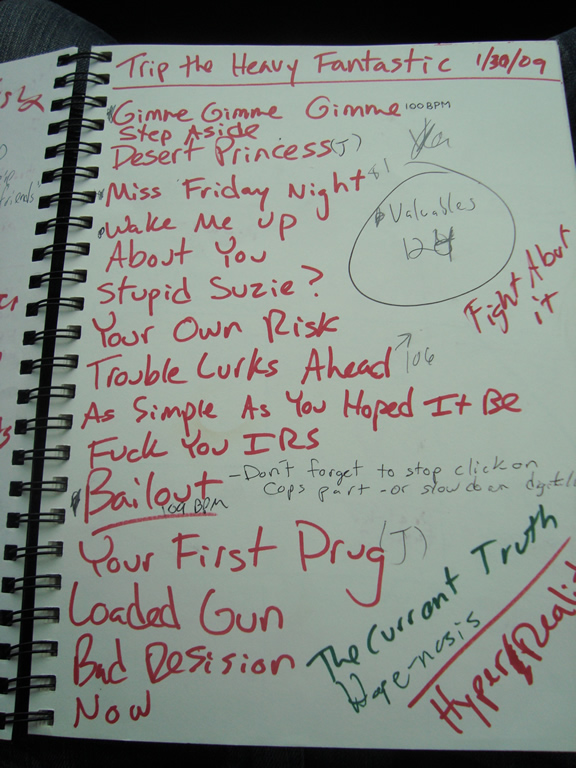 Trip the Heavy Fantastic 1/30/09
Gimme Gimme Gimme 100 BPM
Step Aside
Desert Princess (J)
Miss Friday Night 81
Valuables
Wake Me Up
About You
Stupid Suzie?
Fight About it
Your Own Risk
Trouble Lurks Ahead 106
As Simple As You Hoped It Be
Fuck You IRS
Bailout - Don't forget to stop click on
Cops part - or slow down digitally
109 BPM
Your First Drug (J)
Loaded Gun
Bad Desision
Now
The Current Truth
Hope-nosis
friends'